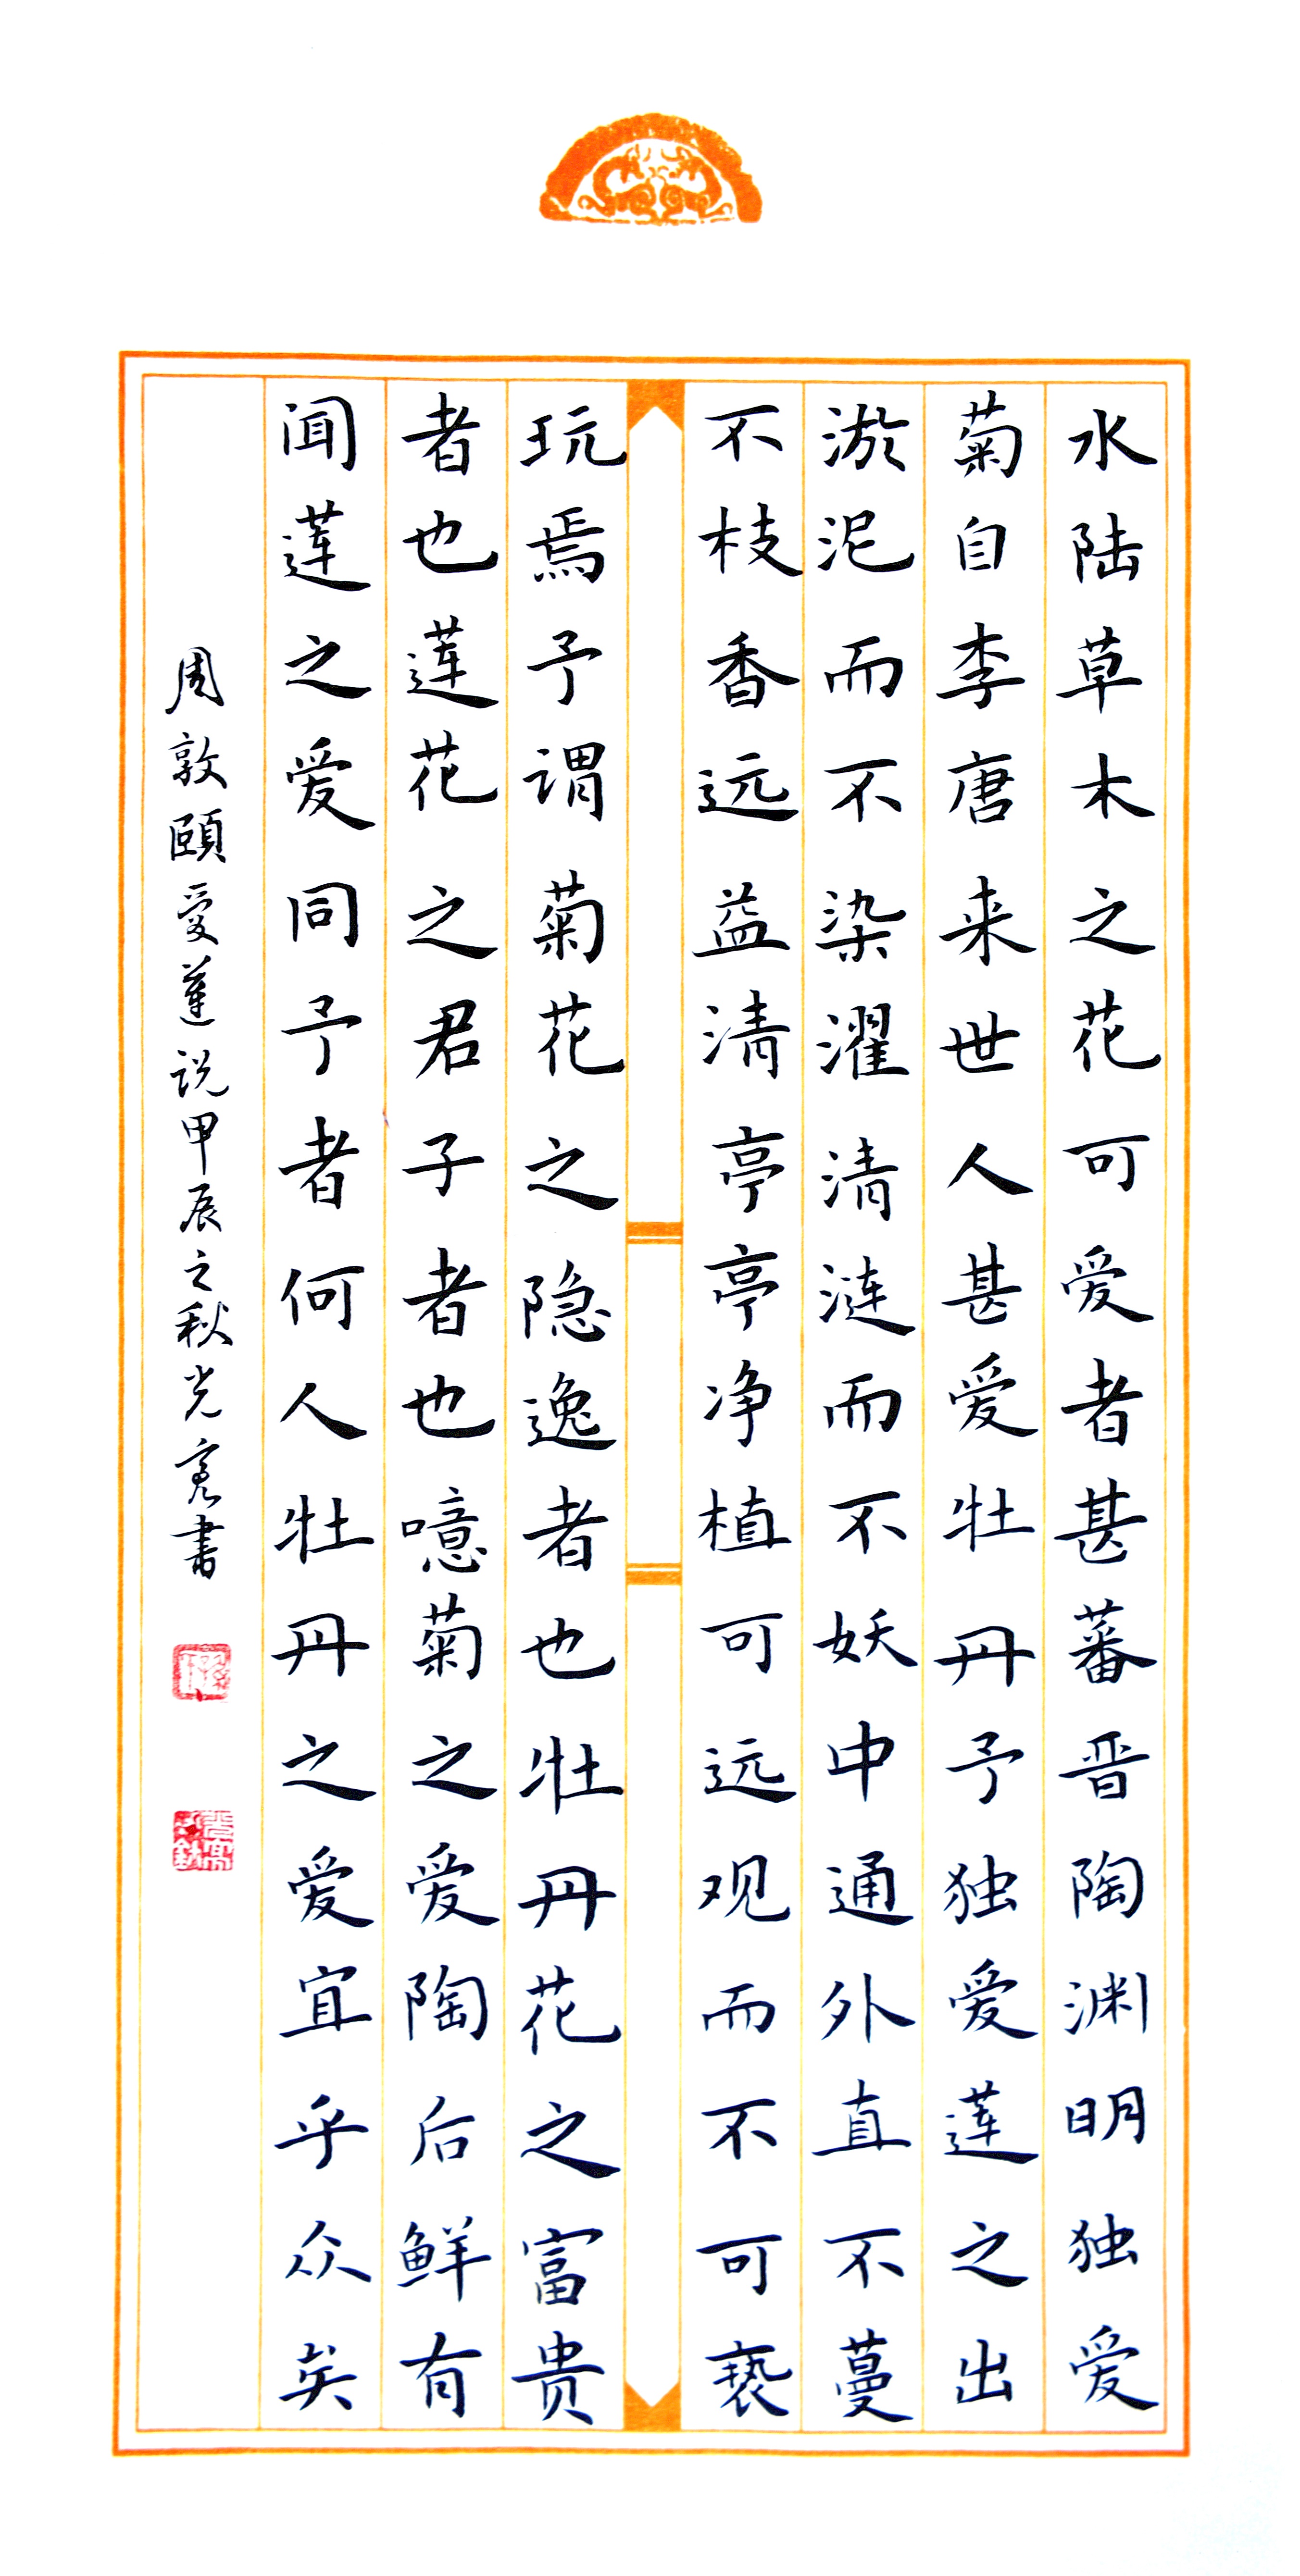 水陆草木之花可爱者甚蕃晋陶渊明独爱
菊自李唐来世人甚爱牡丹予独爱莲之出
淤泥而不染濯清涟而不妖中通外直不蔓
不枝香远益清亭亭净植可远观而不可亵
玩焉予谓菊花之隐逸者也牡丹花之富贵
者也莲花之君子者也噫菊之爱陶后鲜有
闻莲之爱同予者何人牡丹之爱宜乎众矣
周敦頤愛蓮说甲辰之秋光亮书